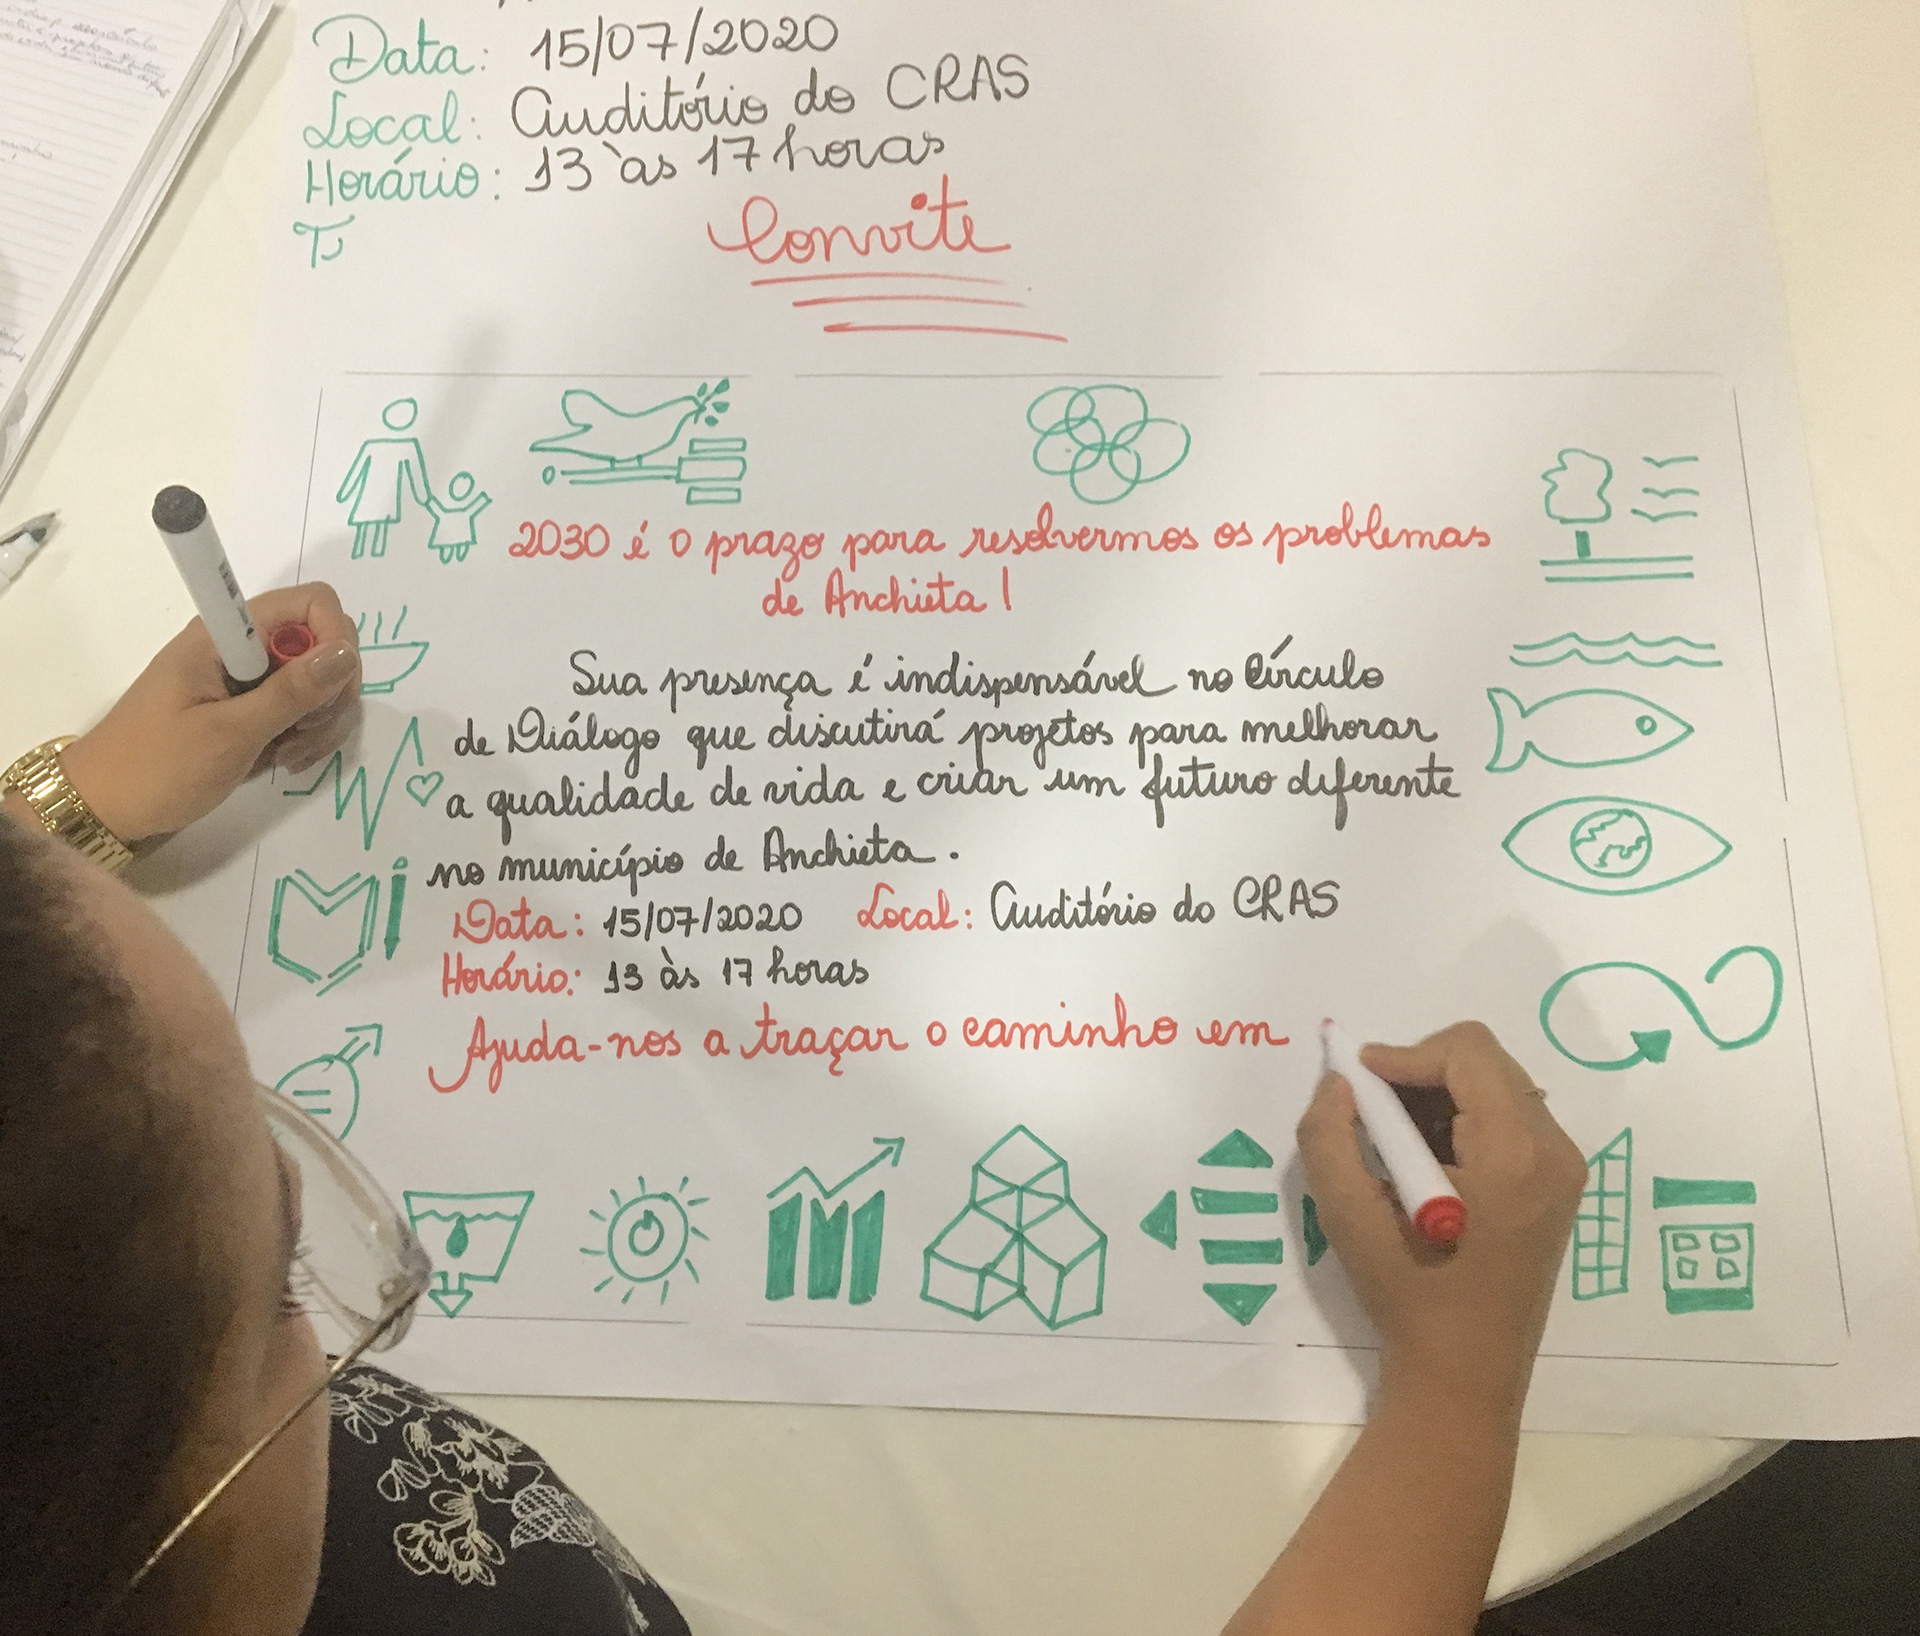 Data: 15/07/2020
Local: Auditório do CRAS
Horário: 13 às 17 horas
T
Convite
2030 é o prazo para resolvermos os problemas
de Anchieta!
Sua presença é indispensável no Círculo
de Diálogo que discutirá projetos para melhorar
a qualidade de vida e criar um futuro diferente
no município de Anchieta.
Data: 15/07/2020 Local: Auditório do CRAS
Horário: 13 às 17 horas
Ajuda-nos a traçar o caminho em